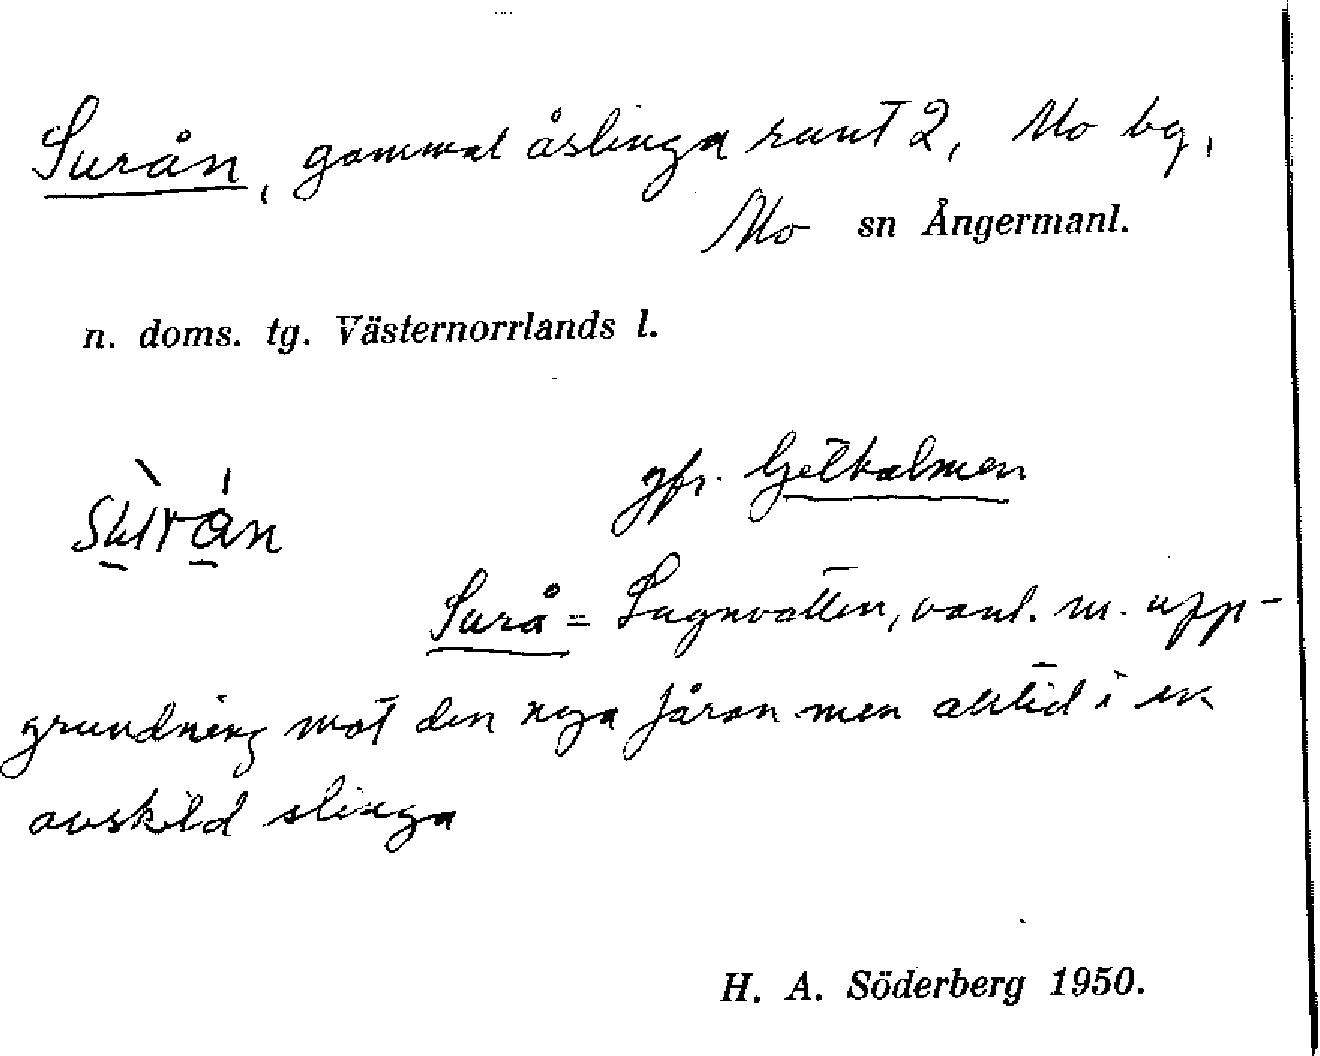 Surån, gammal åslinga runt 2, Mo bg,
Mo sn Ångermanl.
n. doms. tg. Västernorrlands l.
sùrán
jfr. Getholmen
Surå = Lugnvatten, vanl. m. upp-
grundning mot den nya fåran men alltid i en
avskild slinga
H. A. Söderberg 1950.